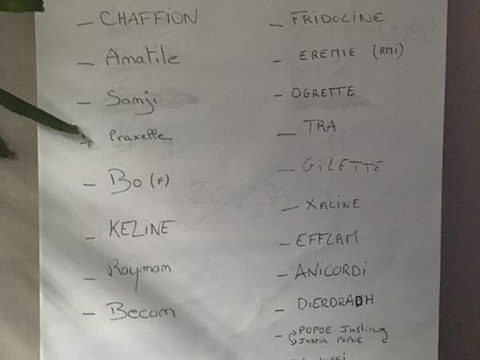 - CHAFFION
- Amatile
- Samji
- Praxelle
- Bo (f)
- KELINE
- Rayimam
- Becom
- FRIDOLINE
- EREMIE (RMI)
- OGRETTE
- TRA
- GILETTE
- XALINE
- EFFLAM
- ANICORDI
- DIERDRADH
- POPOE Justing
Justin POPOE